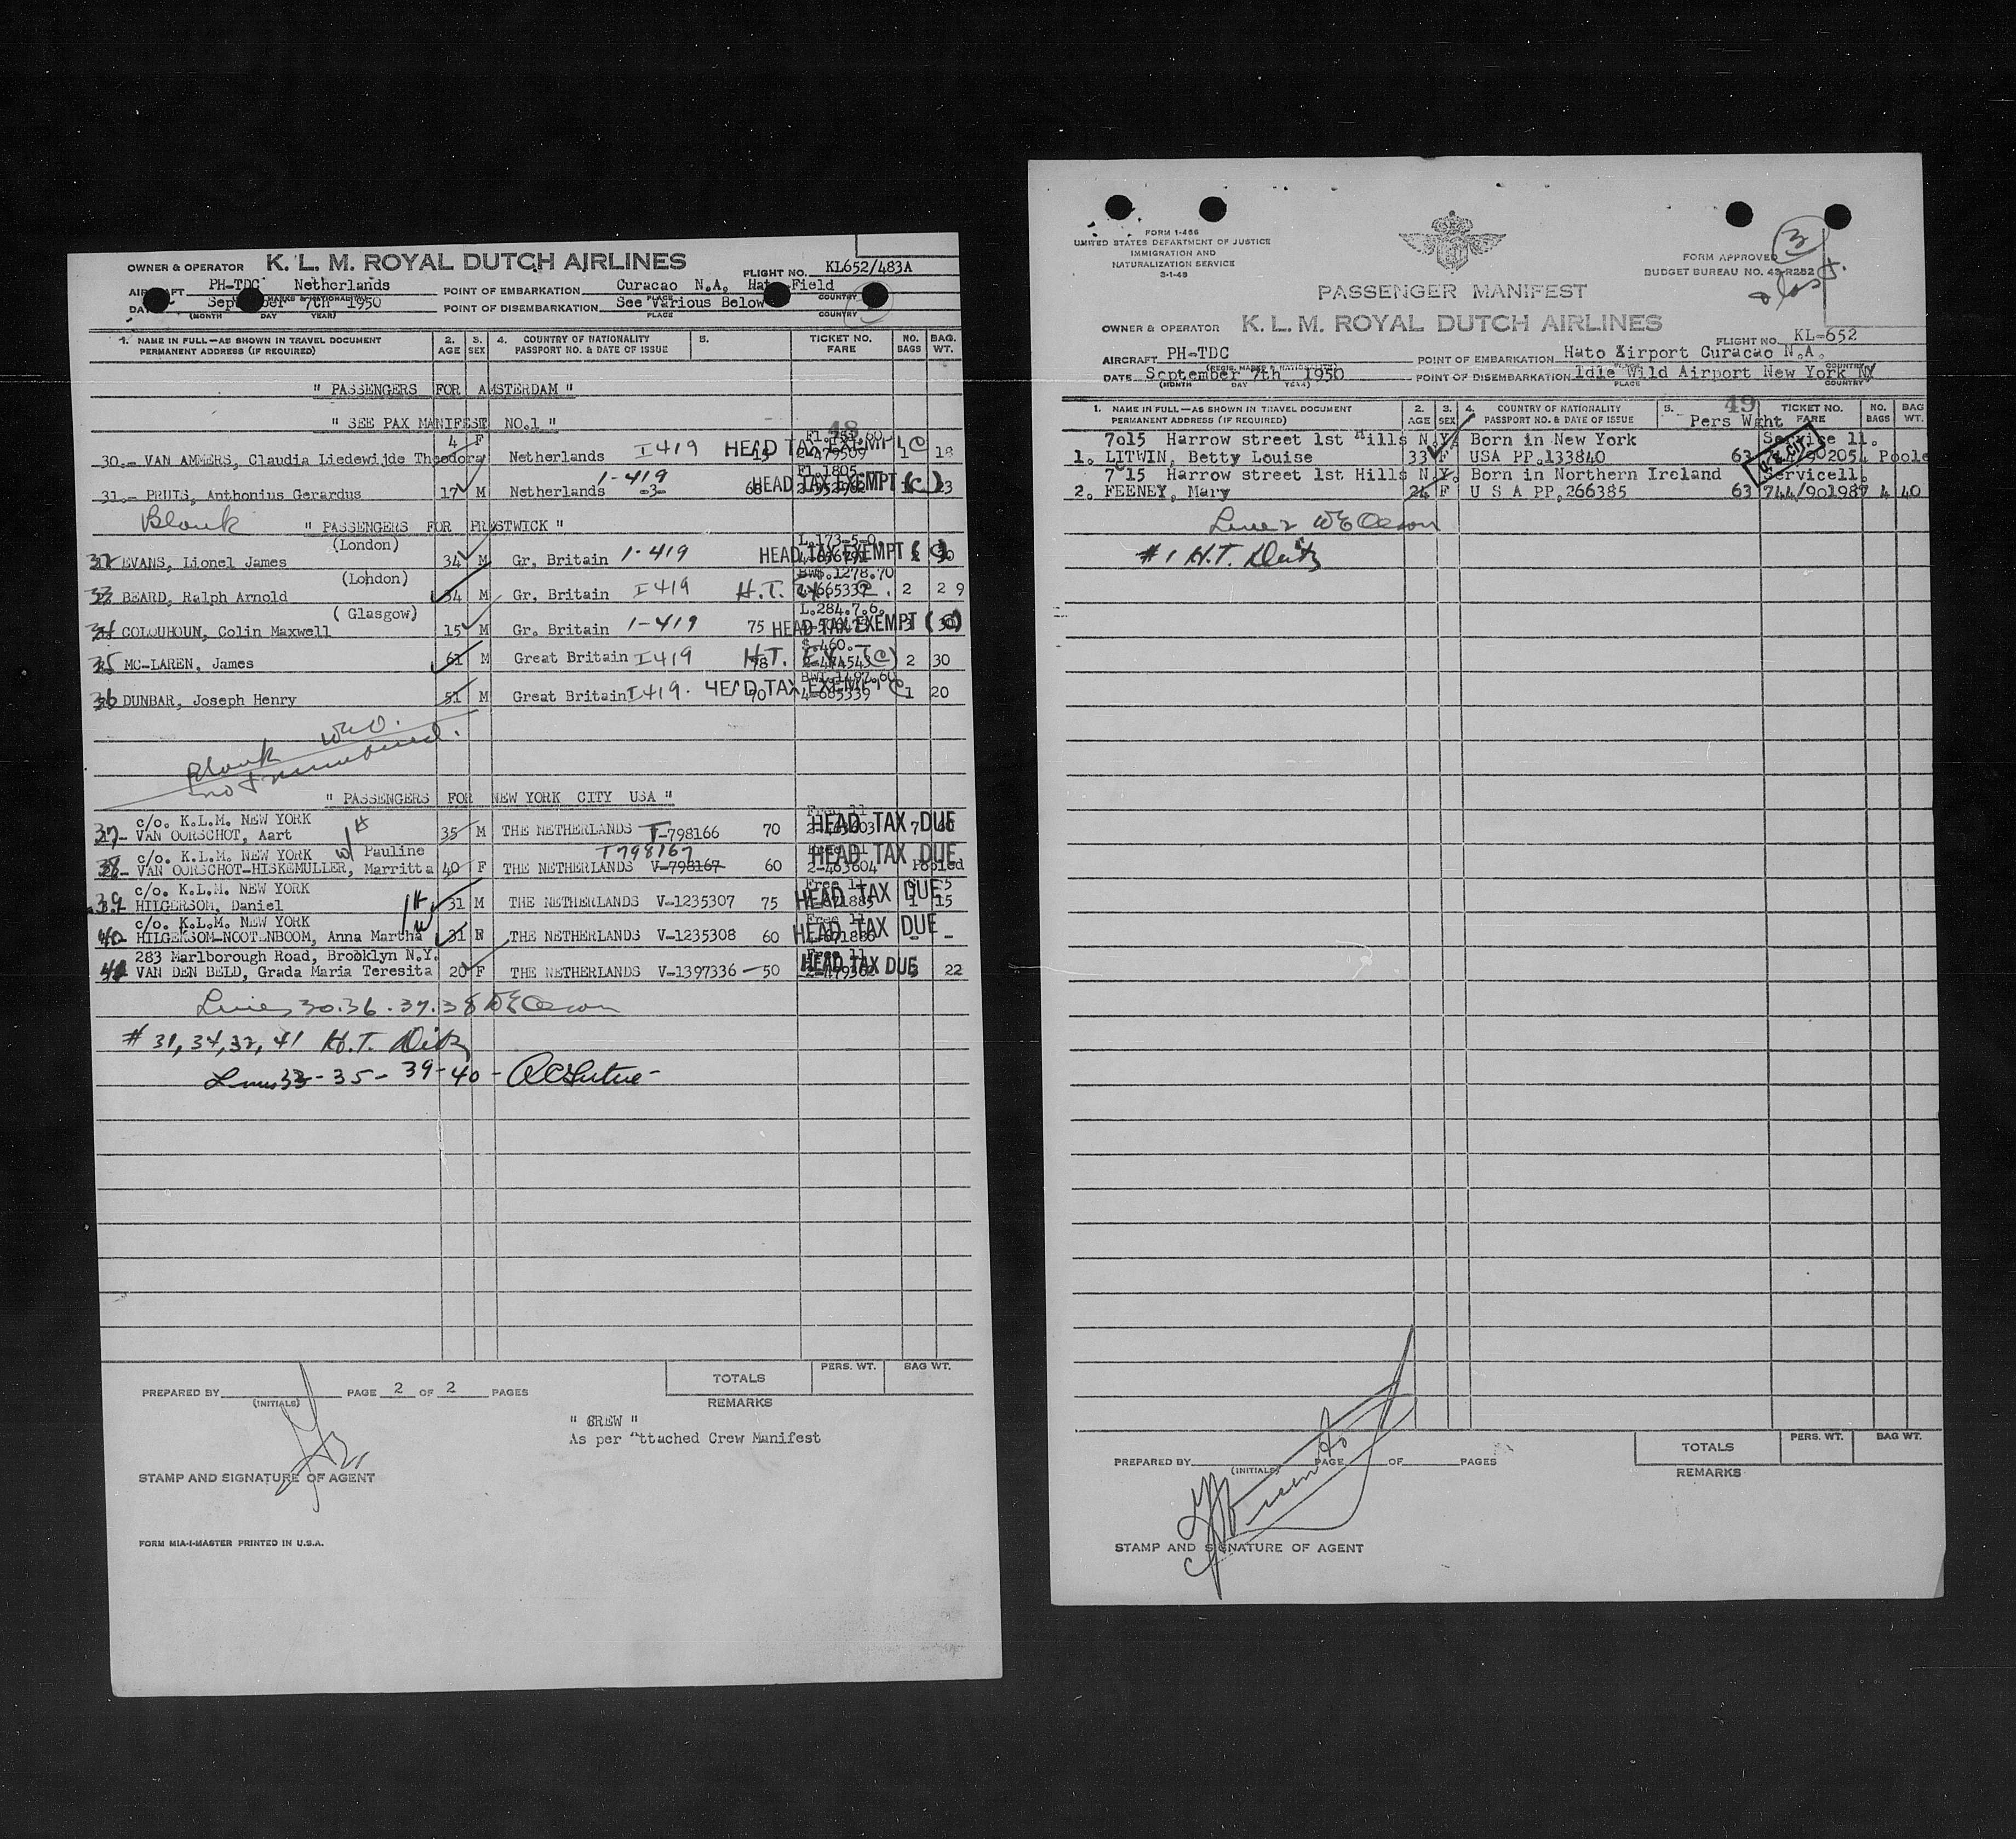 OWNER & OPERATOR K. L. M. ROYAL DUTCH AIRLINES FLIGHT NO. KL652/483A
AIRCRAFT PH-TDC Netherlands POINT OF EMBARKATION Curacao N.A. Hato Field
DATE September 7th 1950 POINT OF DISEMBARKATION See Various Below
(MONTH DAY YEAR) PLACE COUNTRY
1. NAME IN FULL—AS SHOWN IN TRAVEL DOCUMENT 2. 3. 4. COUNTRY OF NATIONALITY 5. TICKET NO. NO. BAG.
PERMANENT ADDRESS (IF REQUIRED) AGE SEX PASSPORT NO. & DATE OF ISSUE FARE BAGS WT.
" PASSENGERS FOR AMSTERDAM "
" SEE PAX MANIFEST NO.1 " 48
30.- VAN AMMERS, Claudia Liedewijde Theodora 4 F Netherlands I 419 HEAD TAX EXEMPT (C) 1 18
31.- PRUIS, Anthonius Gerardus 17 M Netherlands 1-419 -3- Fl.1805.- HEAD TAX EXEMPT (C) 23
Blank " PASSENGERS FOR PRESTWICK "
(London) L.173-5-0
32 EVANS, Lionel James 34 M Gr. Britain 1-419 HEAD TAX EXEMPT (C) 30
(London) BW$.1278.70
33 BEARD, Ralph Arnold 34 M Gr. Britain I 419 H.T. 2 2 9
( Glasgow) L.284.7.6.
34 COLOUHOUN, Colin Maxwell 15 M Gr. Britain 1-419 75 HEAD TAX EXEMPT (C)
$.460.-
35 MC-LAREN, James 61 M Great Britain I 419 78 H.T. EX. (C) 2 30
36 DUNBAR, Joseph Henry 51 M Great Britain I 419. 70 HEAD TAX EXEMPT C 4-685339 1 20
Blank WEO.
not manned.
" PASSENGERS FOR NEW YORK CITY USA "
c/o. K.L.M. NEW YORK Free 11
37- VAN OORSCHOT, Aart H 35 M THE NETHERLANDS T-798166 70 HEAD TAX DUE 7 60
c/o. K.L.M. NEW YORK w/ Pauline T798167
38- VAN OORSCHOT-HISKEMULLER, Marritta 40 F THE NETHERLANDS V-798167 60 HEAD TAX DUE 2-463604 Pooled
c/o. K.L.M. NEW YORK Free 11
39 HILGERSOM, Daniel H 31 M THE NETHERLANDS V-1235307 75 HEAD TAX DUE 1 15
c/o. K.L.M. NEW YORK Free 11
40 HILGERSOM-NOOTENBOOM, Anna Martha w 31 F THE NETHERLANDS V-1235308 60 HEAD TAX DUE - -
283 Marlborough Road, Brooklyn N.Y. Free 11
41 VAN DEN BELD, Grada Maria Teresita 20 F THE NETHERLANDS V-1397336 - 50 HEAD TAX DUE 22
Lines 30.36.37.38 WE Olsson
# 31, 34, 32, 41 H.T. Dietz
Lines 33-35-39-40-
PERS. WT. BAG WT.
TOTALS
PREPARED BY PAGE 2 OF 2 PAGES
(INITIALS) REMARKS
" CREW "
As per Attached Crew Manifest
STAMP AND SIGNATURE OF AGENT
FORM MIA-I-MASTER PRINTED IN U.S.A.
FORM I-466
UNITED STATES DEPARTMENT OF JUSTICE
IMMIGRATION AND
NATURALIZATION SERVICE
3-1-48
3
last
FORM APPROVED
BUDGET BUREAU NO. 43-R252
PASSENGER MANIFEST
OWNER & OPERATOR K. L. M. ROYAL DUTCH AIRLINES FLIGHT NO. KL-652
AIRCRAFT PH-TDC POINT OF EMBARKATION Hato Airport Curacao N.A.
DATE September 7th 1950 POINT OF DISEMBARKATION Idle Wild Airport New York NY
(MONTH DAY YEAR) PLACE COUNTRY
1. NAME IN FULL—AS SHOWN IN TRAVEL DOCUMENT 2. 3. 4. COUNTRY OF NATIONALITY 5. 49 TICKET NO. NO. BAG
PERMANENT ADDRESS (IF REQUIRED) AGE SEX PASSPORT NO. & DATE OF ISSUE Pers Wght FARE BAGS WT.
7o15 Harrow street 1st Hills N.Y. Born in New York Service 11.
1. LITWIN, Betty Louise 33 F USA PP.133840 63 U.S. CIT. Poole
7o15 Harrow street 1st Hills N.Y. Born in Northern Ireland Service11.
2. FEENEY, Mary 24 F U S A PP.266385 63 744/901987 4 40
Line 2 WE Olsson
#1 H.T. Dietz
PERS. WT. BAG WT.
TOTALS
PREPARED BY PAGE OF PAGES
(INITIALS) REMARKS
STAMP AND SIGNATURE OF AGENT